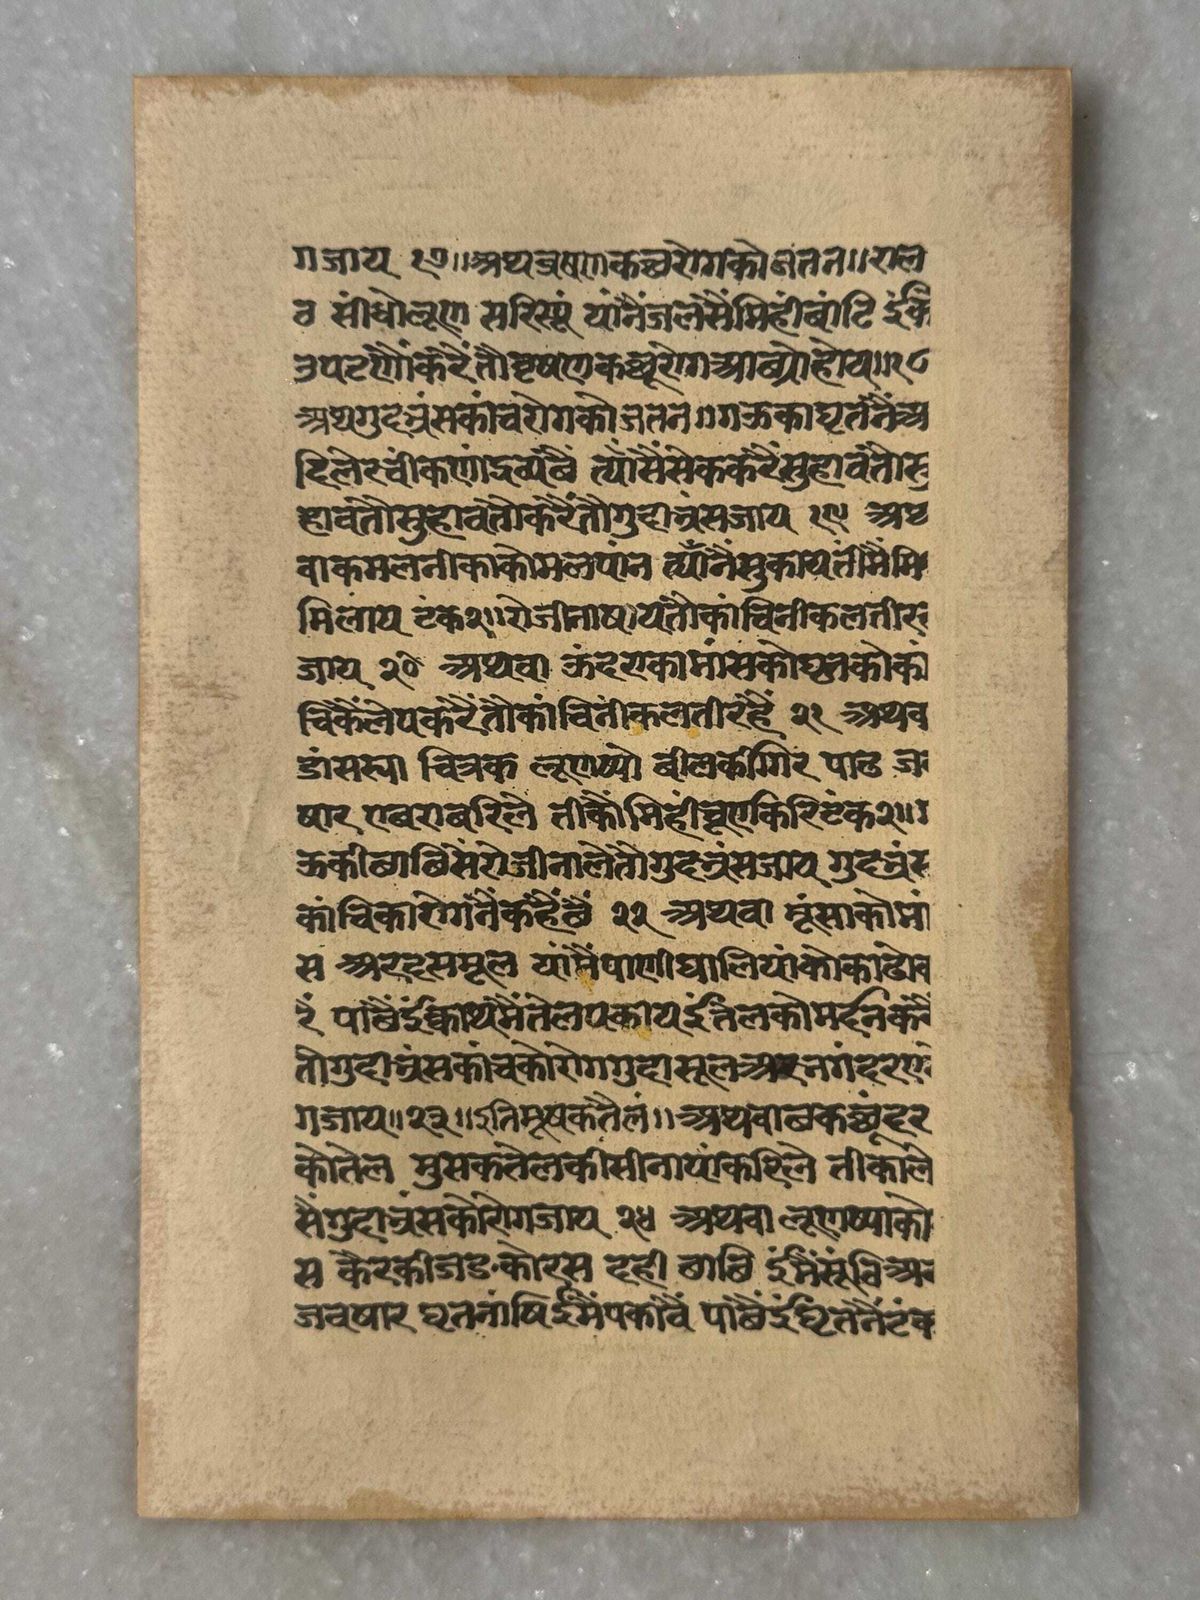 गजाय १७॥अथव्रषणकछूरोगकोजतन॥राल
व सींधोलूण सरिस्यूं यांनैंजलसैंमिहींबांटि ईंक
उपटणौंकरैंतौव्रषणकछूरोगआछ्योहोय॥१८
अथगुदभ्रंसकांचरोगकोजतन॥गऊकाघृतनैंअ
दिलेरचीकणांद्रव्यछै त्यांसैंसेककरैंसुहावंतौसु
हावंतौसुहावंतौकरैंतौगुदाभ्रंसजाय १९ अथ
वाकमलनीकाकोमलपांन त्यांनैंसुकायतींमैंमि
मिलाय टंक२॥रोजीनाषायतौकांचिनीकलतीर
जाय २० अथवा ऊंदराकामांसकोघृतकोकां
चिकैलेपकरैंतौकांचिनींकलतीरहै २१ अथव
डांसस्या चित्रक लूणय्यो बीलकीगिर पाठ ज
षार एबराबरिले तींकोंमिहींचूणकिरिटंक२॥ग
ऊकीछाछिसैंरोजीनालेतौगुदभ्रंसजाय गुदभ्रंस
कांचिकारोगनैंकहैंछैं २२ अथवा मूंसाकोमां
स अरदसमूल यांमैंपाणीघालियांकोकाढोक
रै पाछैईंक्वाथमैंतेलपकायईंतेलकोमर्दनकरै
तौगुदाभ्रंसकांचकोरोगगुदासूलअरभगंदररो
गजाय॥२३॥इतिमूषकतैलं॥अथवाछछूंदर
कोतेल मुसकतेलकीसीनायांकरिले तींकाले
सैंगुदाभ्रंसकोरोगजाय २४ अथवा लूणय्याको
स कैरकीजडकोरस दही छाछि ईंमैंसूंठिअ
जवषार घृतनांषिईंमैंपकावै पाछैईंघृतनैंटंक